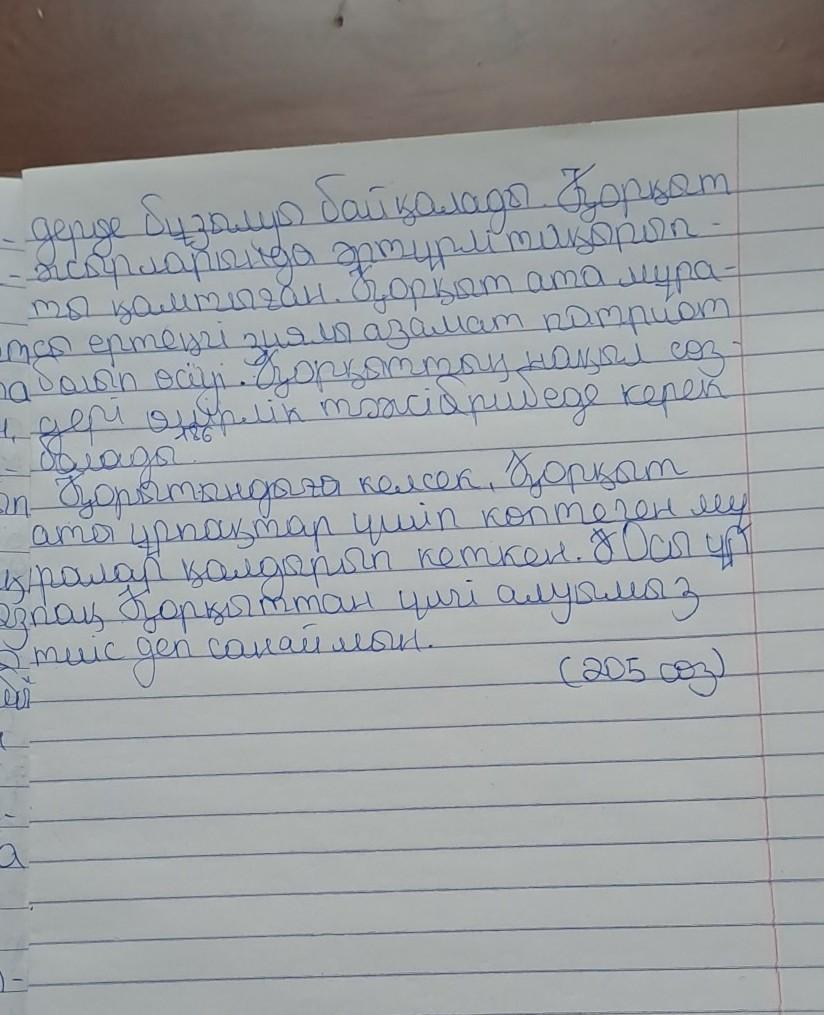 дерде бұзалуы байқалады. Қорқыт
жырларында әртүрлі тақырып-
ты қамтыған. Қорқыт ата мұра-
сы ертеңгі зиялы азамат патриот
болып өсуі. Қорқыттың нақыл сөз-
дері өмірлік тәжірибеде керек
186
болады.
Қорытындыға келсек, Қорқыт
ата ұрпақтар үшін көптеген мұ
ралар қалдырып кеткен. Осы ұр
пақ Қорқыттан үлгі алуымыз
тиіс деп санаймын.
(205 сөз)